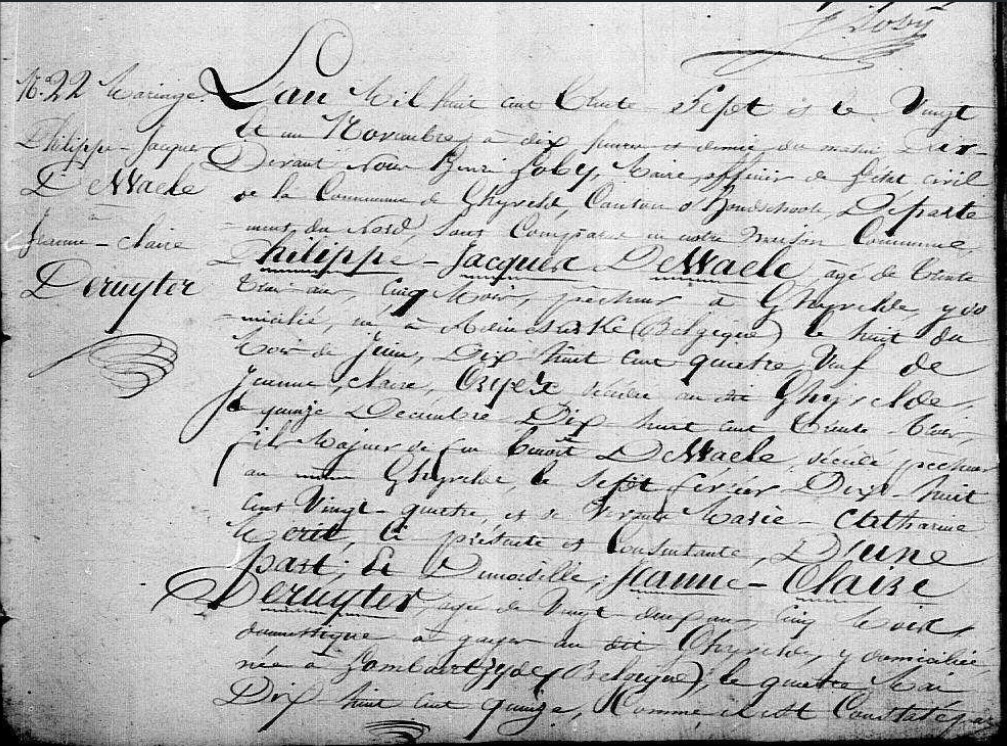 J. Loby
N.o 22 Mariage.
Philippe-Jacques
DeWaele
à
Jeanne-Claire
Deruyter
L'an Mil huit cent trente-Sept et le Vingt
et un Novembre, à dix heures et demie du matin, Par-
Devant Nous Henri Loby, Maire, officier de l'état civil
de la Commune de Ghyvelde, Canton d'Hondschoote, Département
du Nord, Sont Comparu en notre maison Commune,
Philippe-Jacques DeWaele âgé de trente
trois ans, cinq Mois, pêcheur à Ghyvelde, y do
micilié, né à (Belgique) le huit du
Mois de Juin, Dix-huit cent quatre, Veuf de
Jeanne, claire, décédée au dit Ghyvelde,
le quinze Décembre Dix-huit cent trente-
fils Majeur de feu Benoit DeWaele, décédé pêcheur
au Ghyvelde, le Sept février Dix-huit
cent Vingt-quatre, et de Marie-Catharine
ci présente et Consentante, D'une
part; Et Demoiselle, Jeanne-Claire
Deruyter, âgée de Vingt deux ans, cinq Mois,
domestique à gages au dit Ghyvelde, y domiciliée
née à Lombartzyde (Belgique), le quatre Mai
Dix-huit cent quinze, Comme il est Constaté par